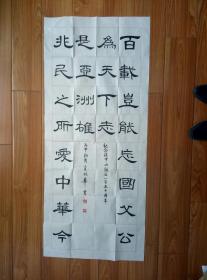 百載豈能忘國父公
為天下志
是亞洲雄
兆民之所愛中華今
紀念孫中山誕辰一百五十周年